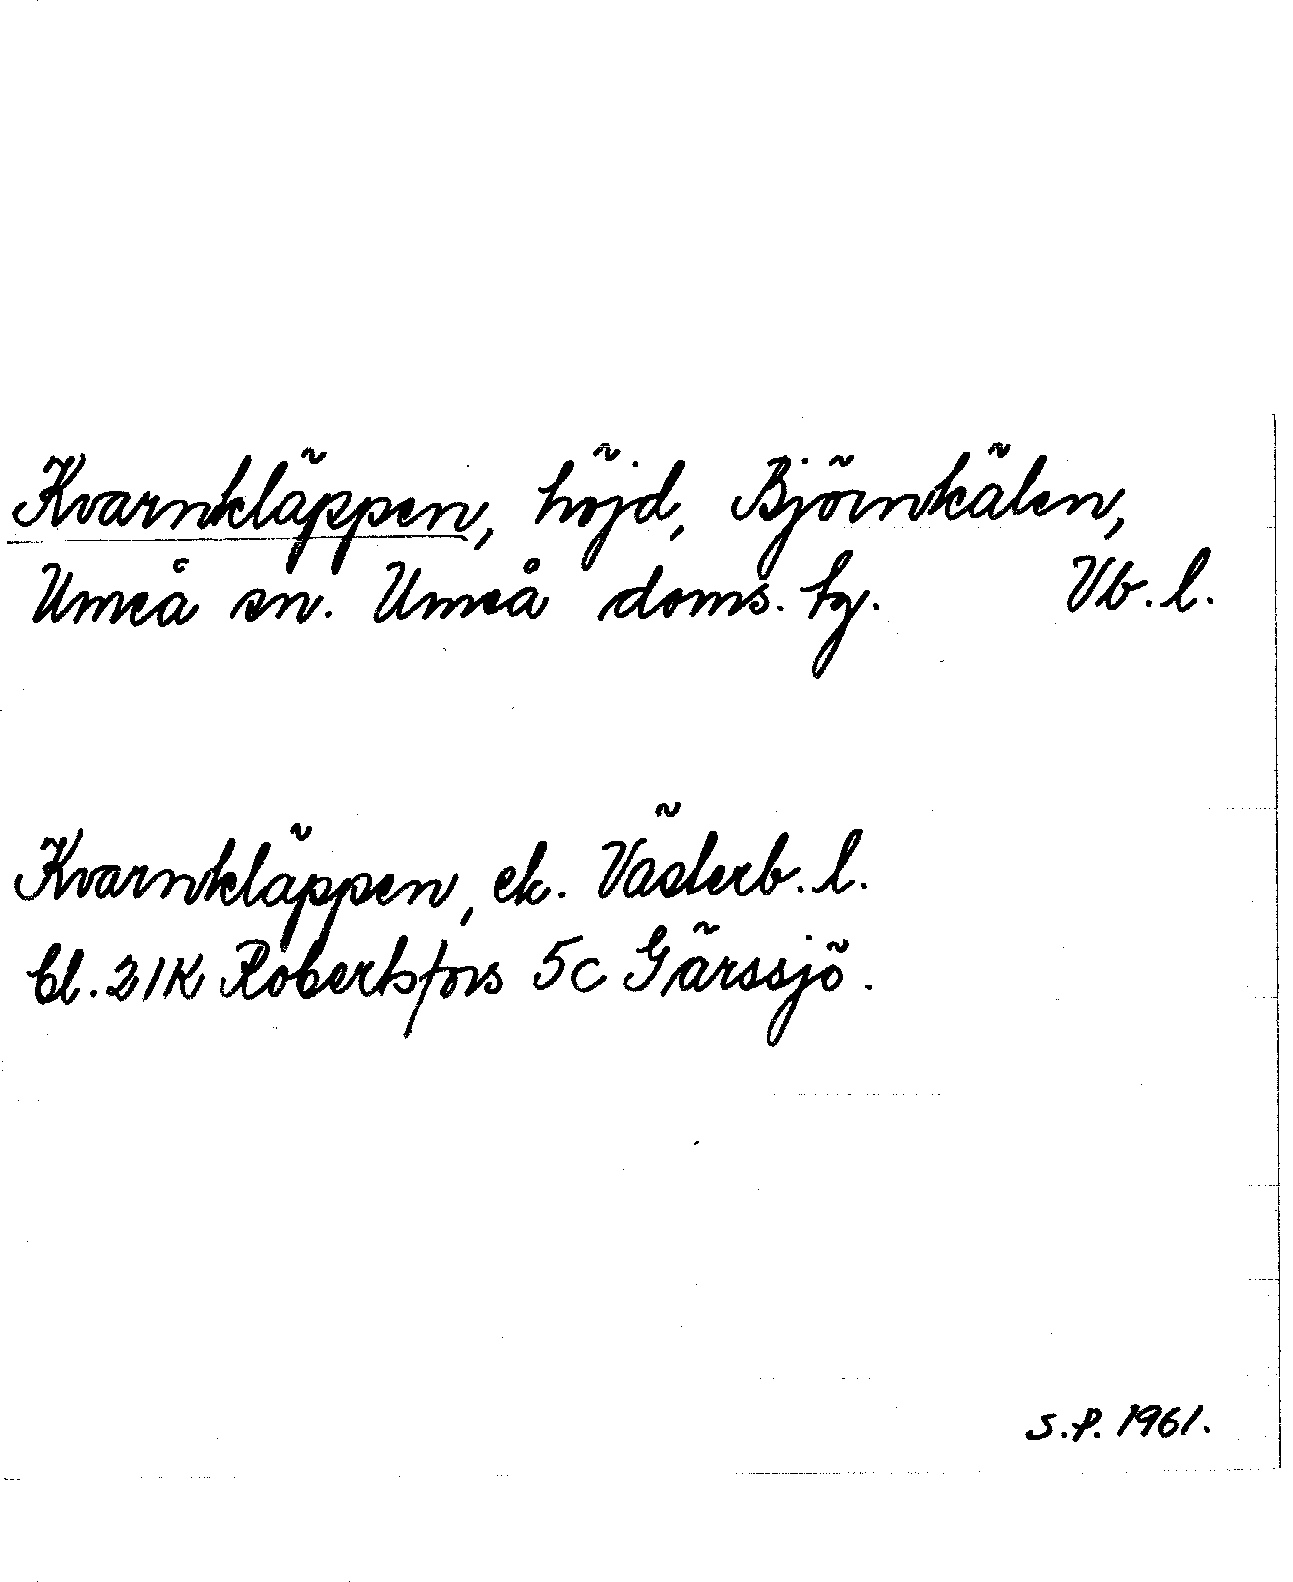 Kvarnkläppen, höjd, Björnkälen,
Umeå sn. Umeå doms. tg. Vb. l.
Kvarnkläppen, ek. Västerb. l.
bl. 21K Robertsfors 5c Gärssjö.
S.P. 1961.